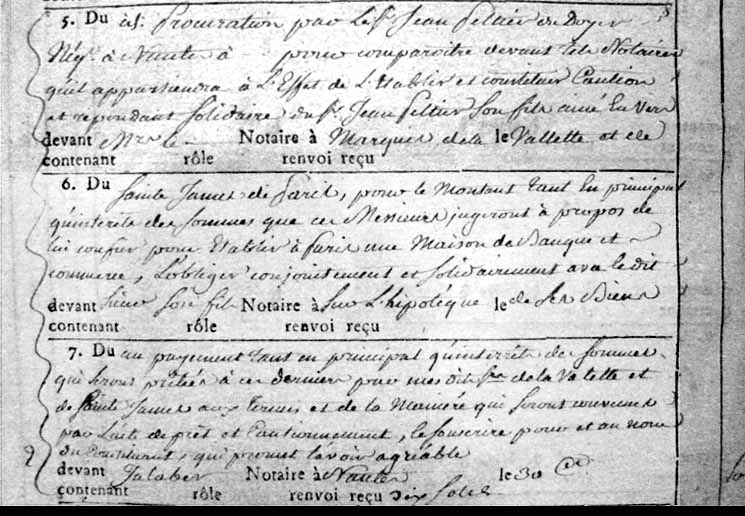 5. Du id. Procuration par le Sr. Jean Peltier du Doyer
Négt. à Nantes à pour comparoître devant tels Notaires
qu'il appartiendra à L'Effet de L'Etablir et constituer Caution
et repondant Solidaire du Sr. Jean Peltier Son fils ainé Envers
devant Mrs. le Notaire à Marquis de la le Vallette et de
contenant rôle renvoi reçu
6. Du Sainte James de Paris, pour le Montant tant En principal
qu'interêts des Sommes que ces Messieurs jugeront à propos de
lui confier pour Etablir à Paris une Maison de Banque et
commerce, L'obliger conjointement et Solidairement avec le dit
devant Sieur Son fils Notaire à Sur L'hipotéque le de Ses Biens
contenant rôle renvoi reçu
7. Du au payement tant en principal qu'interrêts des Sommes
qui Seront prêtées à ce dernier par mes dits Srs. de la Valette et
de Sainte James aux termes et de la Maniére qui Seront convenus
par L'acte de prêt et Cautionnement, le Souscrire pour et au nom
du Constituant, qui promet l'avoir agréable
devant Jalaber Notaire à Nantes le 30
contenant rôle renvoi reçu dix Sols